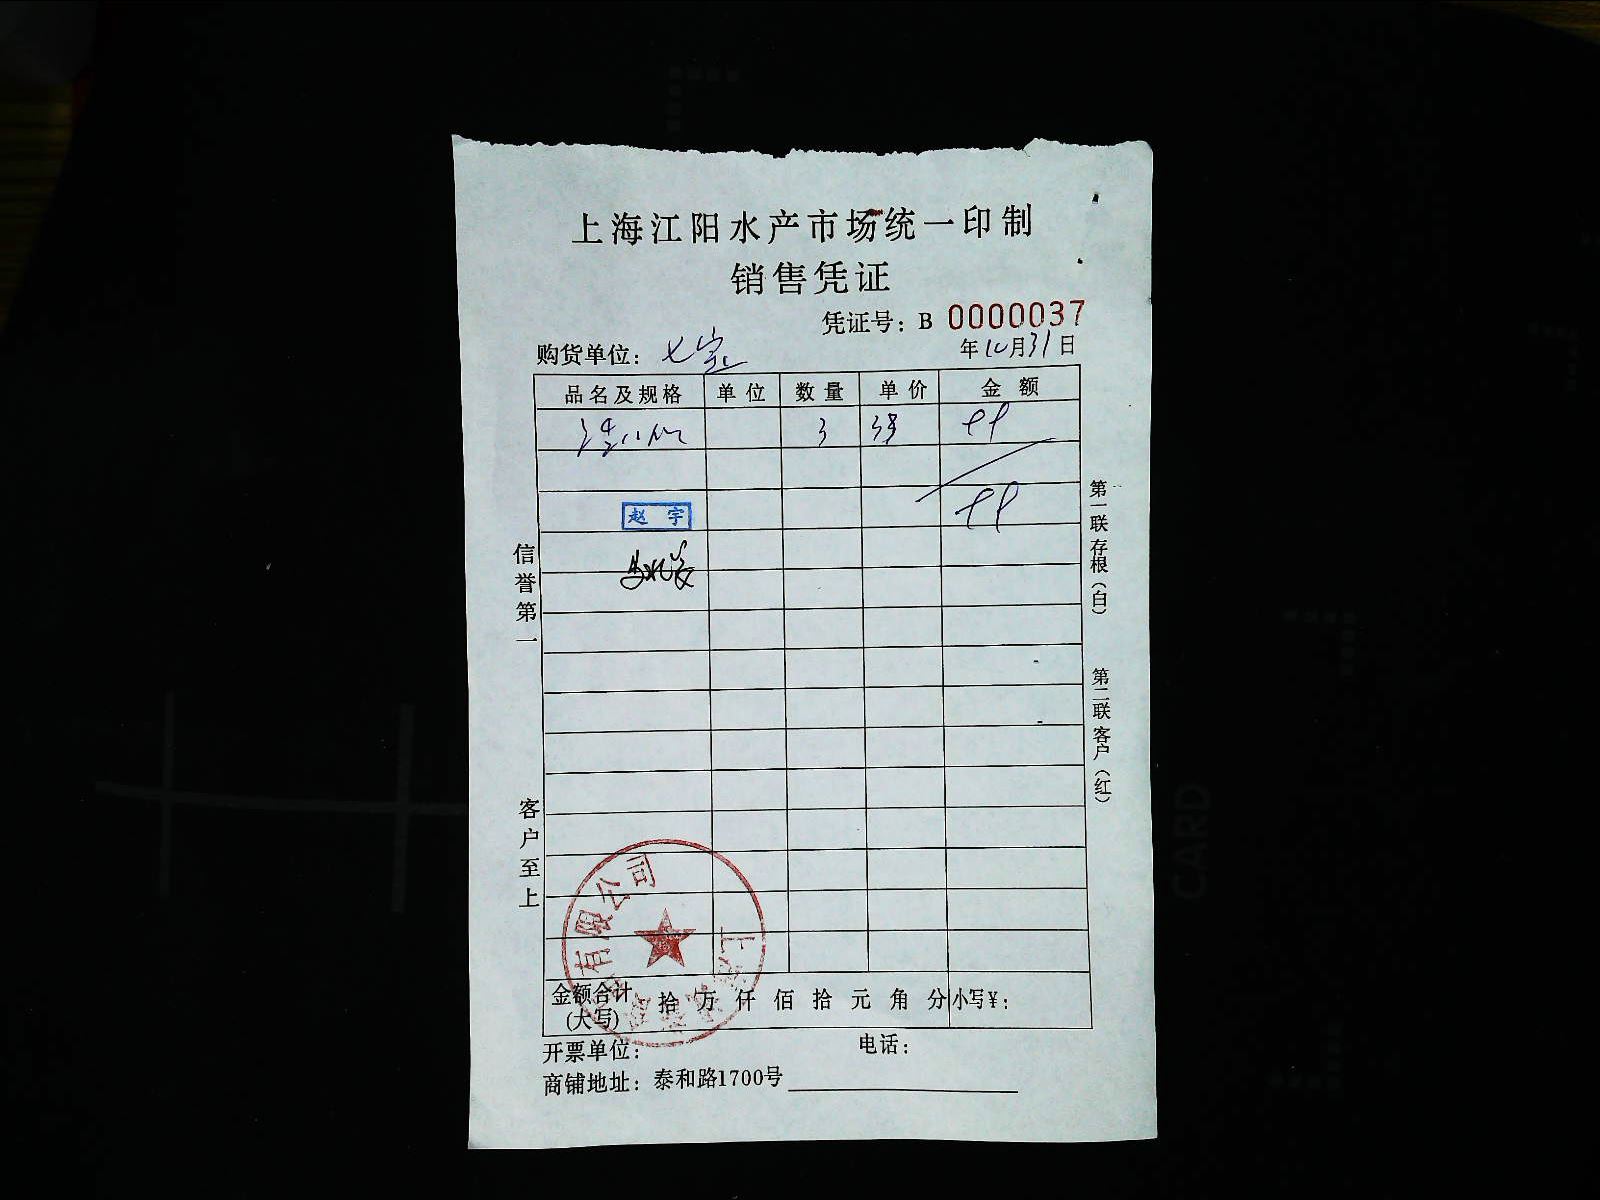 上海江阳水产市场统一印制
销售凭证
凭证号：B 0000037
购货单位：七宝 年10月31日
品名及规格 单位 数量 单价 金额
3
赵宇
信誉第一
客户至上
第一联存根（白）
第二联客户（红）
上海 有限公司
金额合计(大写) 拾万仟佰拾元角分 小写¥：
开票单位： 电话：
商铺地址：泰和路1700号
CARD